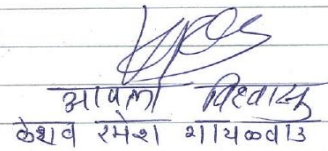 आपला विश्वासू
केशव रमेश गायकवाड